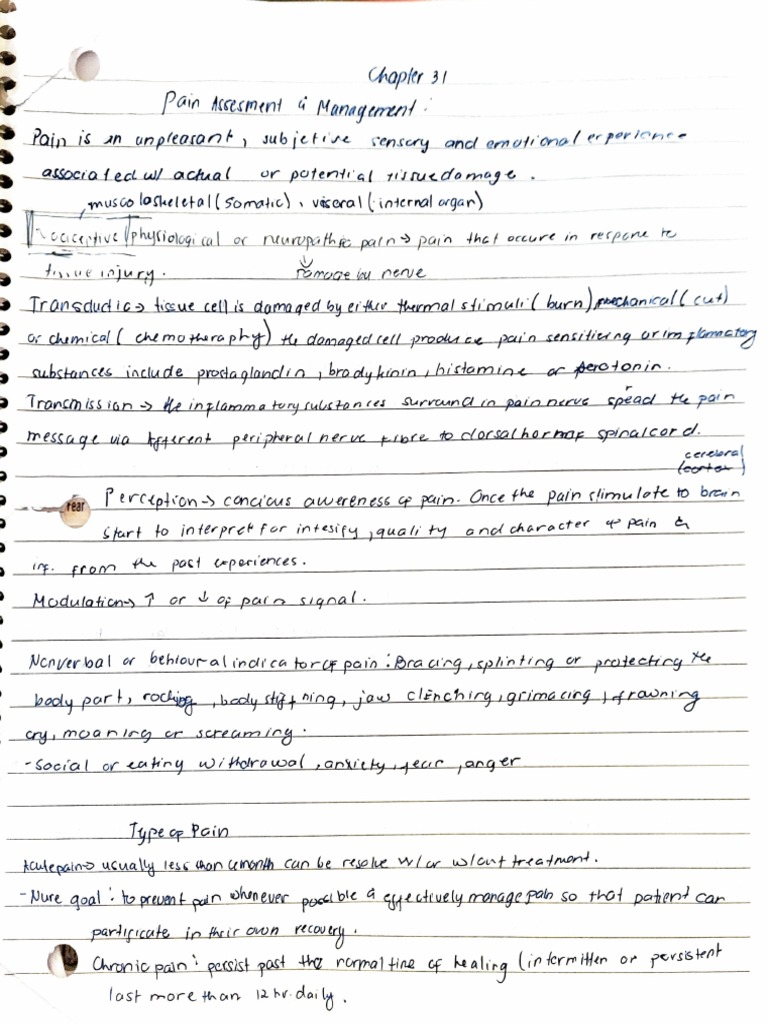 Chapter 31
Pain Assesment & Management:
Pain is an unpleasant, subjective sensory and emotional experience
associated w/ actual or potential tissue damage.
muscoloskeletal (somatic), viseral (internal organ)
Nociceptive physiological or neuropathic pain → pain that occure in respone to
tissue injury. ↓ damage by nerve
Transductio → tissue cell is damaged by either thermal stimuli (burn) mechanical (cut)
or chemical (chemotheraphy) the damaged cell produce pain sensitizing or imflammatory
substances include prostaglandin, bradykinin, histamine or serotonin.
Transmission → the inflammatory substances surroundin pain nerve spread the pain
message via Afferent peripheral nerve fibre to dorsal horn of spinal cord.
cerebral
(cortex)
rear
Perception → concious awereness of pain. Once the pain stimulate to brain
start to interpret for intesify, quality and character of pain &
inf. from the past experiences.
Modulation → ↑ or ↓ of pain signal.
Nonverbal or behioural indicator of pain: Bracing, splinting or protecting the
body part, rocking, body stiffning, jaw clenching, grimacing, frowning
cry, moaning or screaming.
- Social or eating withdrawal, anxiety, fear, anger
Type of Pain
Acute pain → usually less than 6 month can be resolve w/ or w/out treatment.
- Nure goal: to prevent pain whenever possible & effectively manage pain so that patient can
participate in their own recovery.
Chronic pain: persist past the normal time of healing (intermitten or persistent
last more than 12 hr. daily.